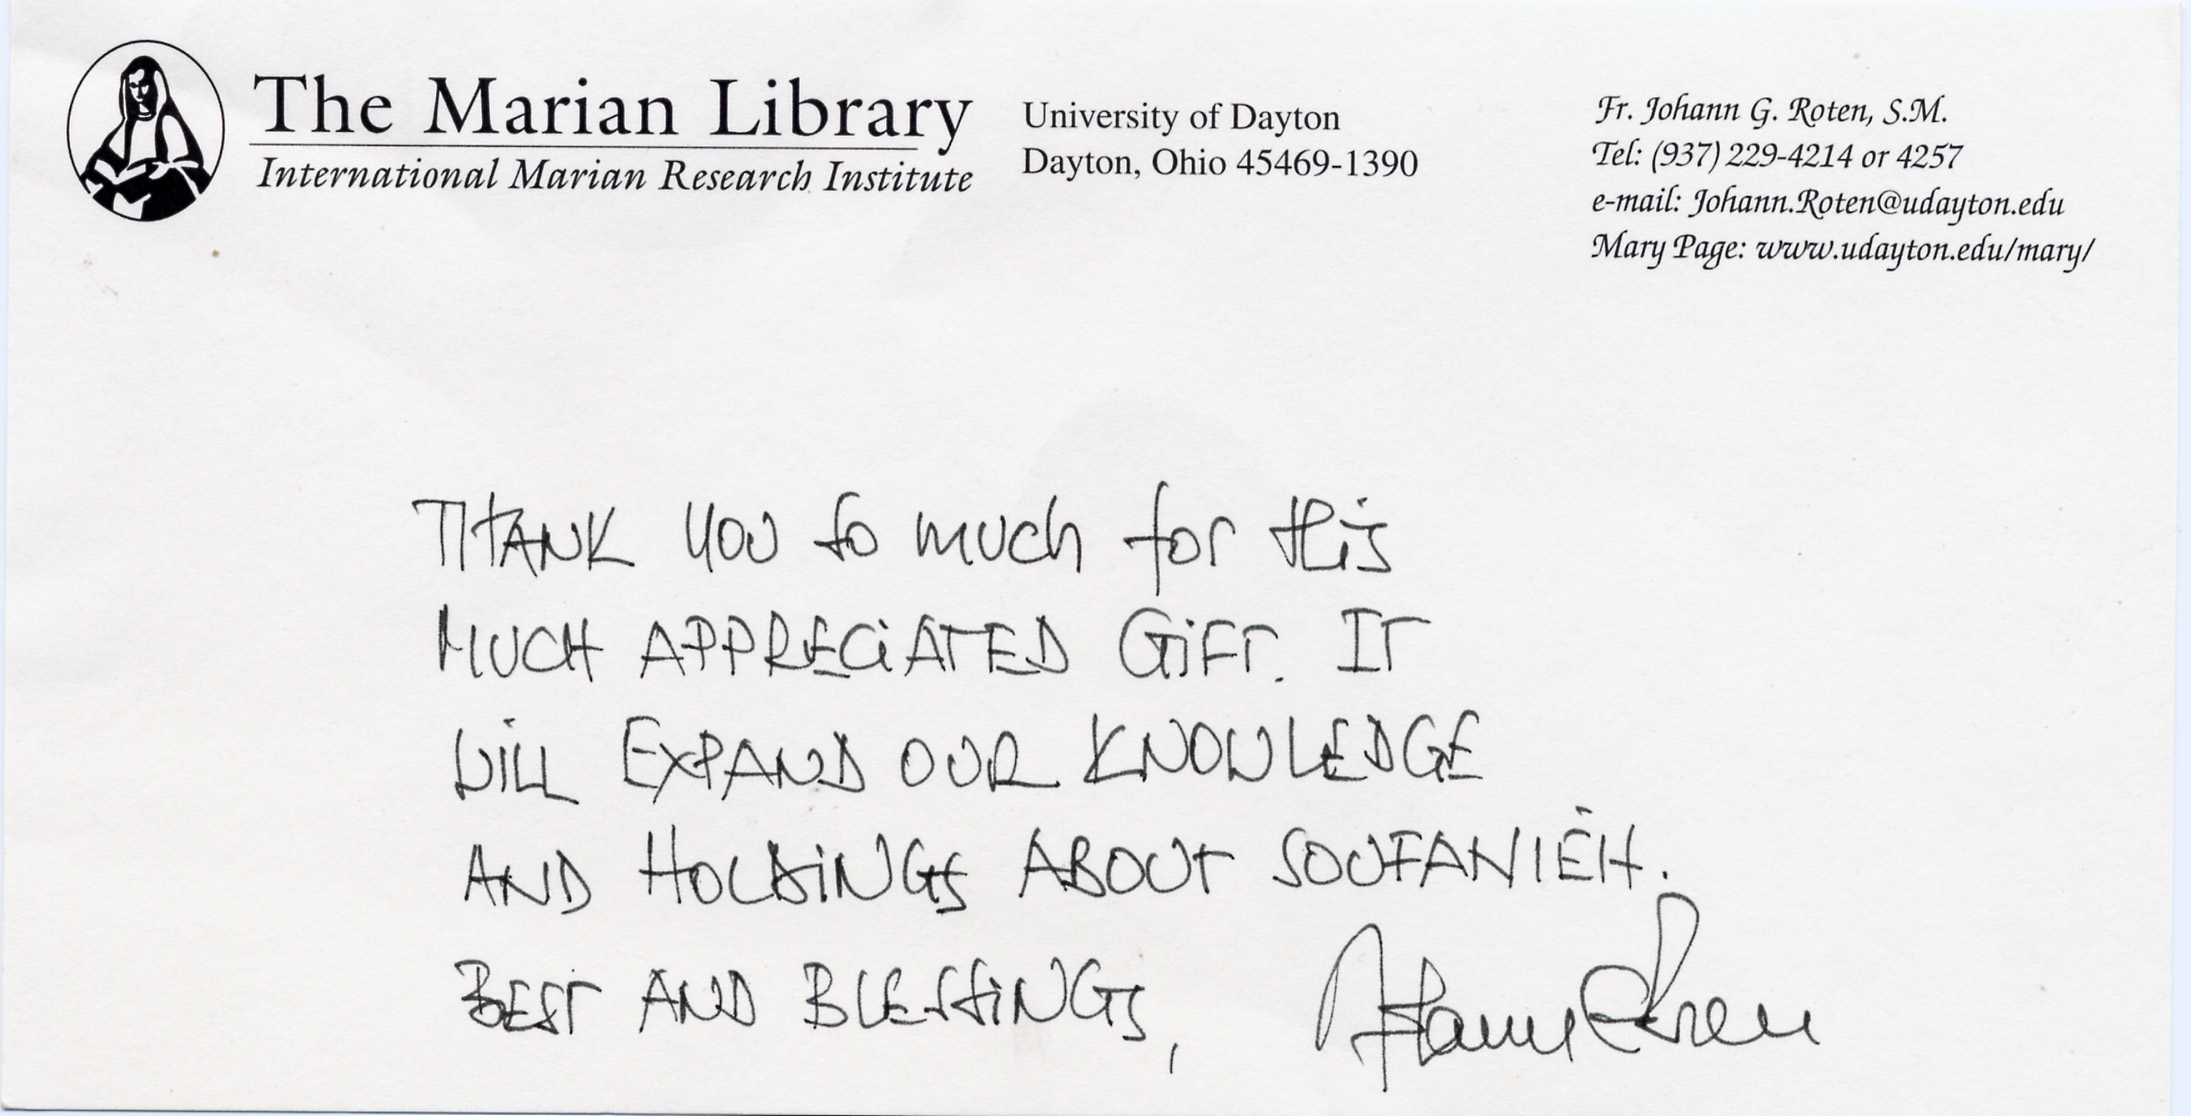 The Marian Library
International Marian Research Institute
University of Dayton
Dayton, Ohio 45469-1390
Fr. Johann G. Roten, S.M.
Tel: (937) 229-4214 or 4257
e-mail: Johann.Roten@udayton.edu
Mary Page: www.udayton.edu/mary/
THANK YOU so much for this
MUCH APPRECiATED GiFT. IT
WiLL EXPAND OUR KNOWLEDGE
AND HOLDiNGS ABOUT SOUFANIĖH.
BEST AND BLESSiNGS,